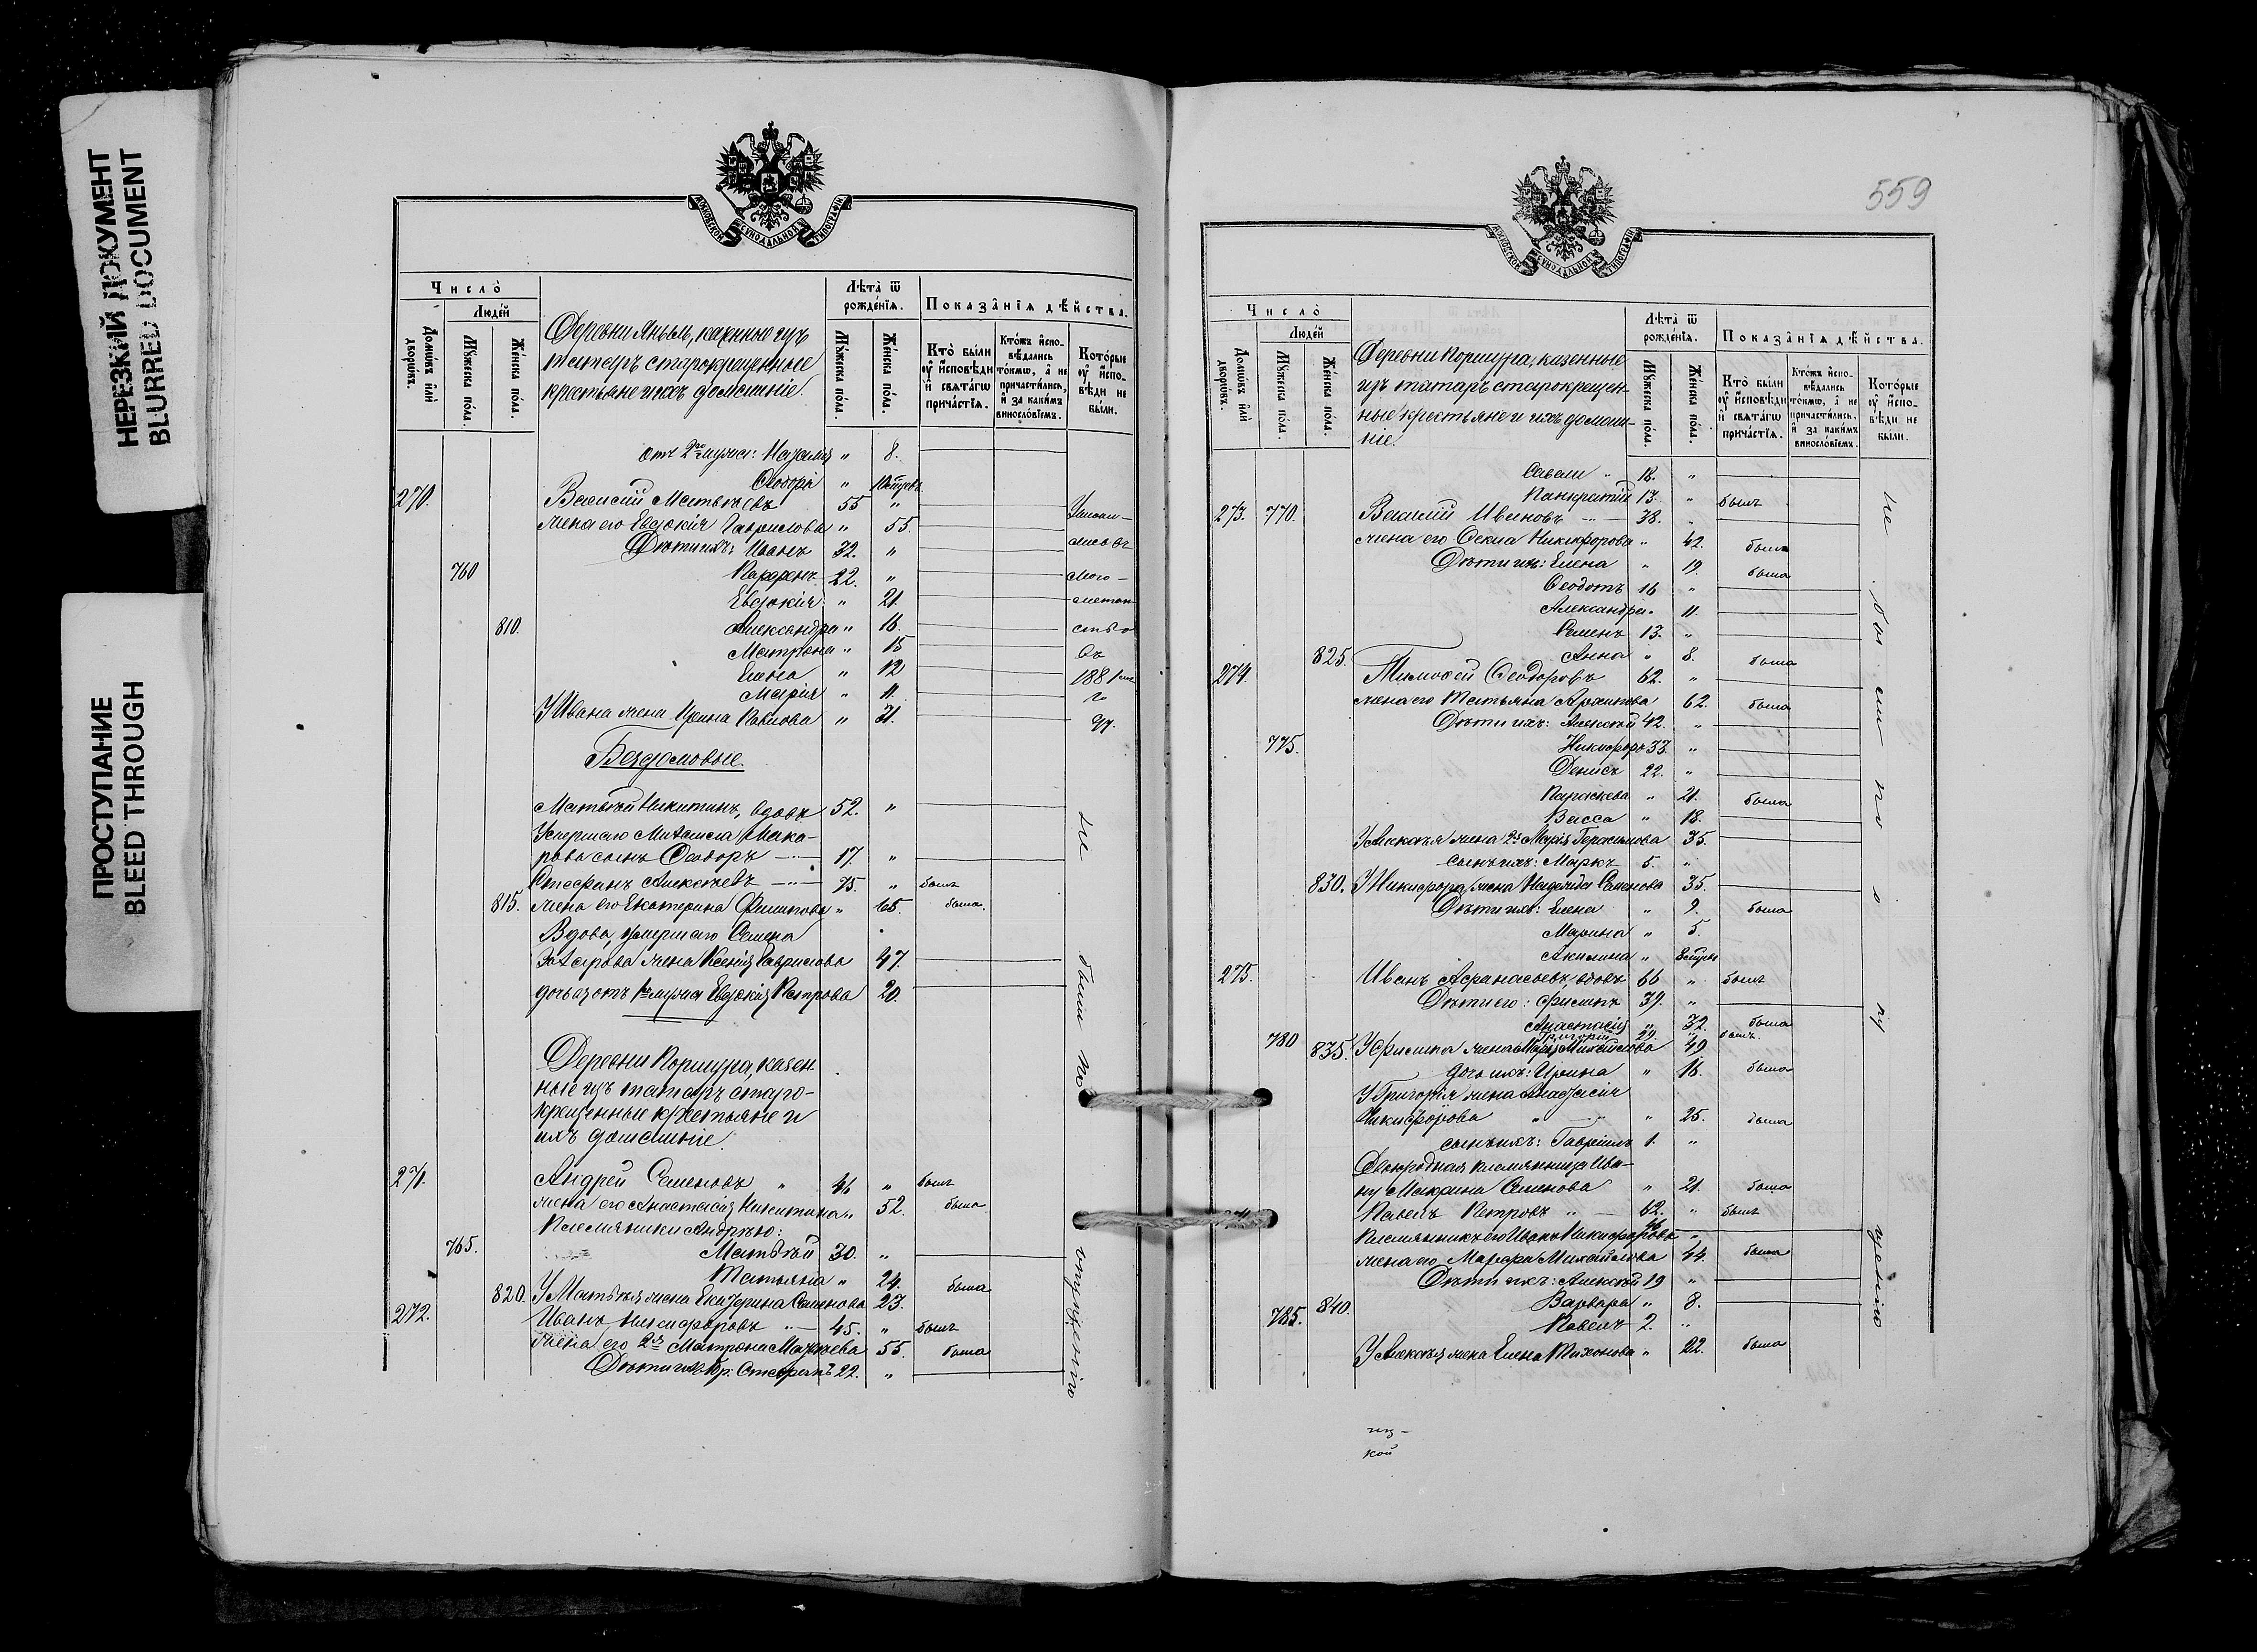 НЕРЕЗКИЙ ДОКУМЕНТ
BLURRED DOCUMENT
ПРОСТУПАНИЕ
BLEED THROUGH
МОСКОВСКОЙ СѴНОДАЛЬНОЙ ТИПОГРАФІИ
Число̀
Люде́й
Домѡ́въ и҆лѝ дворѡ́въ.
Мꙋ́жеска по́ла.
Же́нска по́ла.
Деревни Яныль, казенные изъ
татаръ старокрещенные
крестьяне и ихъ домашніе.
Лѣта̀ ѿ рожде́нїѧ.
Мꙋ́жеска по́ла.
Же́нска по́ла.
Показа̂нїѧ дѣ́йства.
Кто̀ бы́ли ᲂу҆ и҆́сповѣди и҆ свѧта́гѡ прича́стїѧ.
Кто́жъ и҆спо- вѣ́дались то́кмѡ, а҆ не причасти́лись, и҆ за каки́мъ винослѡ́вїемъ.
Кото́рые ᲂу҆ и҆́спо- вѣди не бы́ли.
отъ 2го мужа: " 8.
Ѳеодора "
270. Василий Матвѣевъ 55 "
жена его Евдокія Гаврилова " 55.
Дѣти ихъ: Иванъ 32. "
760 Парфенъ 22. "
Евдокія " 21.
810. Александра " 16.
Матрона " 15
Елена " 12
Марія " 11.
У Ивана жена Ирина Павлова " 31.
Уклони-
лись въ
маго-
метан-
ство
въ
188
го
Бездомовые.
Матвѣй Никитинъ, вдовъ 52. "
Умершаго Михаила Мака-
рова сынъ Ѳеодоръ 17. "
Стефанъ Алексѣевъ 75. " былъ
815. жена его Екатерина Филипова " 65. была.
Вдова, умершаго Семена
жена Ксенія Гаврилова 47.
дочь ея отъ 1го мужа Евдокія Петрова 20.
Деревни Поршура, казен-
ные изъ татаръ старо-
крещенные крестьяне и
ихъ домашніе.
271. Андрей Семеновъ " 46 " былъ
жена его Анастасія Никитина " 52. была
Племянники Андрѣю:
765. Матвѣй 30. "
Татьяна " 24. была
820. У Матвѣя жена Екатерина Семенова 23.
272. Иванъ Никифоровъ 45. " былъ
жена его 2я Матрона 55. была
Дѣти Стефанъ 22. "
не были по опущенію
559
МОСКОВСКОЙ СѴНОДАЛЬНОЙ ТИПОГРАФІИ
Число̀
Люде́й
Домѡ́въ и҆лѝ дворѡ́въ.
Мꙋ́жеска по́ла.
Же́нска по́ла.
Деревни Поршура, казенные
изъ татаръ старокрещен-
ные крестьяне и ихъ домаш-
ніе.
Лѣта̀ ѿ рожде́нїѧ.
Мꙋ́жеска по́ла.
Же́нска по́ла.
Показа̂нїѧ дѣ́йства.
Кто̀ бы́ли ᲂу҆ и҆́сповѣди и҆ свѧта́гѡ прича́стїѧ.
Кто́жъ и҆спо- вѣ́дались то́кмѡ, а҆ не причасти́лись, и҆ за каки́мъ винослѡ́вїемъ.
Кото́рые ᲂу҆ и҆́спо- вѣди не бы́ли.
18. "
Панкратій 13. "
273. 770. Василій Ивановъ 38. " былъ
жена его Ѳекла Никифорова " 42. была
Дѣти ихъ: Елена " 19. была
Ѳеодотъ 16 "
Александра " 11.
Семенъ 13. "
825. Анна " 8. была
274. Тимоѳей Ѳеодоровъ 62. "
жена его Татьяна Архипова 62. была
Дѣти ихъ: Алексѣй 42. "
775. Никифоръ 33. "
Денисъ 22. "
Параскева " 21. была
Васса " 18.
У Алексѣя жена 2я Марія Герасимова 35.
сынъ ихъ: Маркъ 5. "
830. У Никифора жена Надежда Семенова 35.
Дѣти ихъ: Елена " 9. была
Марина " 5.
Акилина "
275. Иванъ Аѳанасьевъ, вдовъ 66 " былъ
Дѣти его: Филипъ 39. "
Анастасія " 32. была
780 Григорій 29. " былъ.
835. У Филипа жена Марія Михайлова 49.
дочь ихъ: Ирина " 16. была
У Григорія жена Анастасія
Никифорова " 25. была
сынъ ихъ: Гавріилъ 1. "
Двоюродная племянница Ива-
ну Макрина Семенова " 21. была
Павелъ Петровъ 62. " былъ
племянникъ его Иванъ Никифоровъ 46 "
жена его Марфа Михайлова 44. была
Дѣти ихъ: Алексѣй 19 "
840. Варвара " 8.
785. Павелъ 2. "
У Алексѣя жена Елена Тихонова " 22. была
не были по опущенію
кой